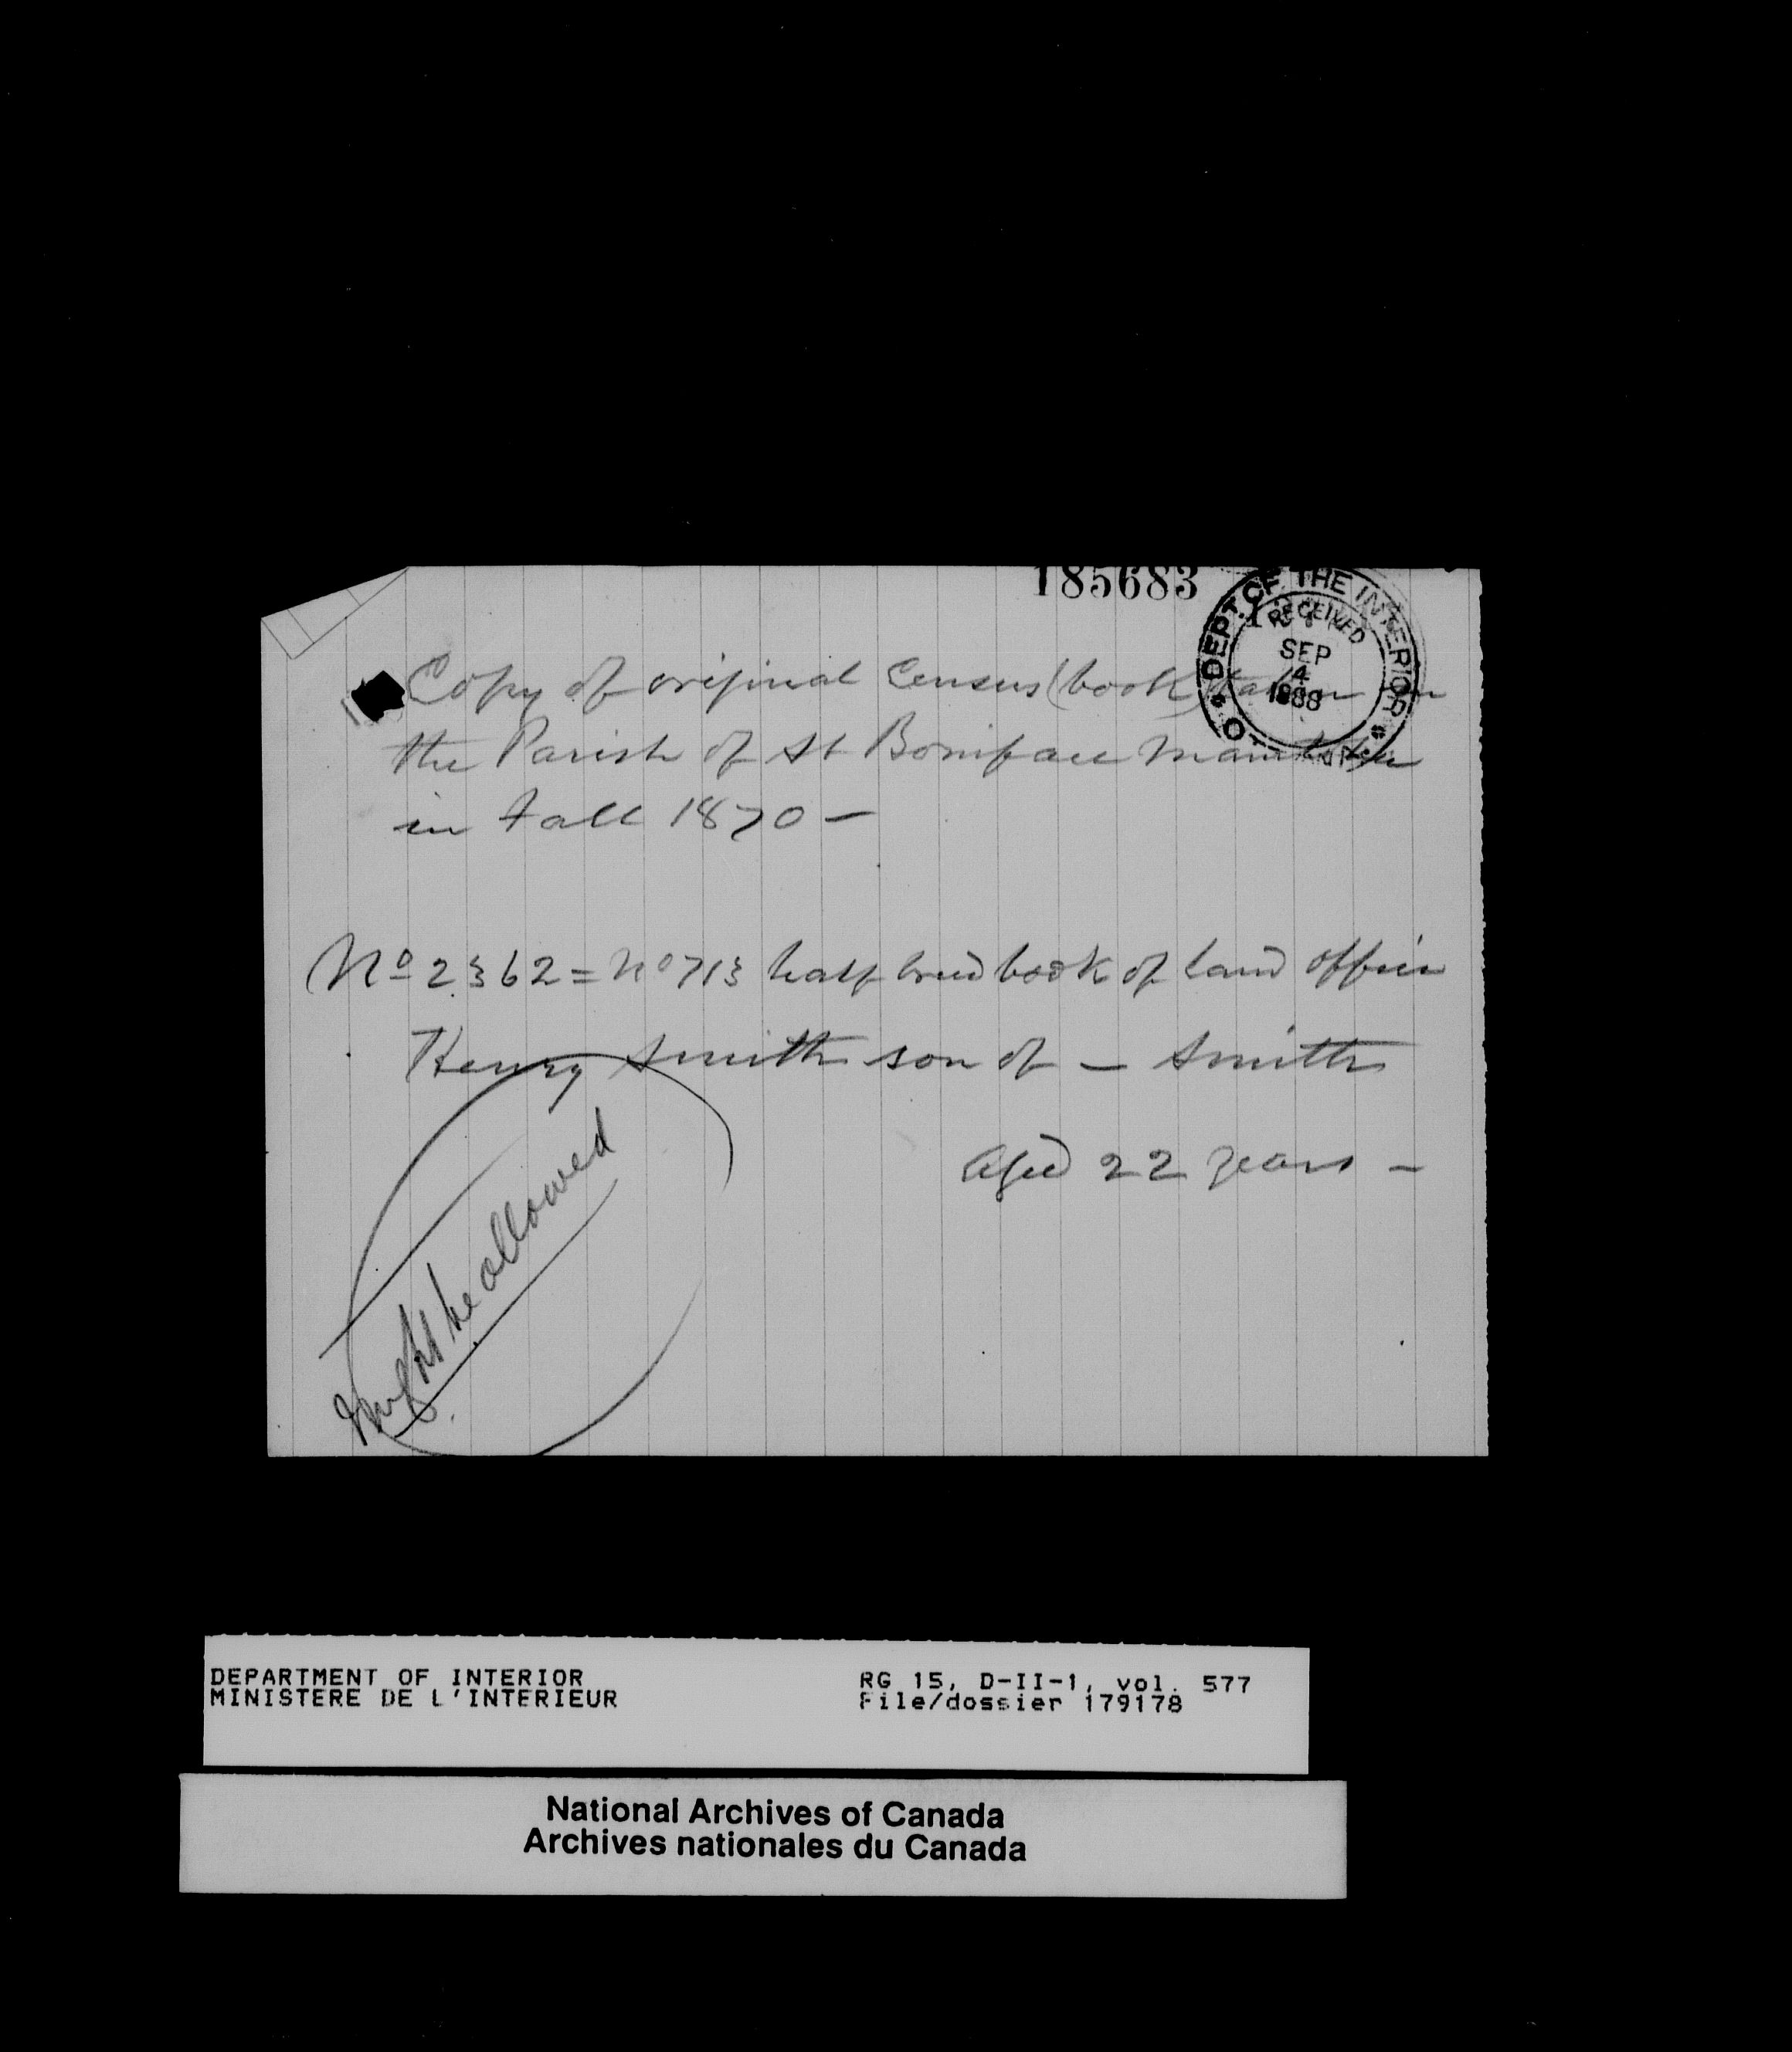 185683
DEPT. OF THE INTERIOR
RECEIVED
SEP
4
1888
Copy of original Census (book) taken in
the Parish of St Boniface Manitoba
in Fall 1870 —
No 2362 = No 713 half breed book of land office
Henry Smith son of — Smith
Aged 22 years —
Might be allowed
DEPARTMENT OF INTERIOR
MINISTERE DE L'INTERIEUR
RG 15, D-II-1, vol. 577
File/dossier 179178
National Archives of Canada
Archives nationales du Canada